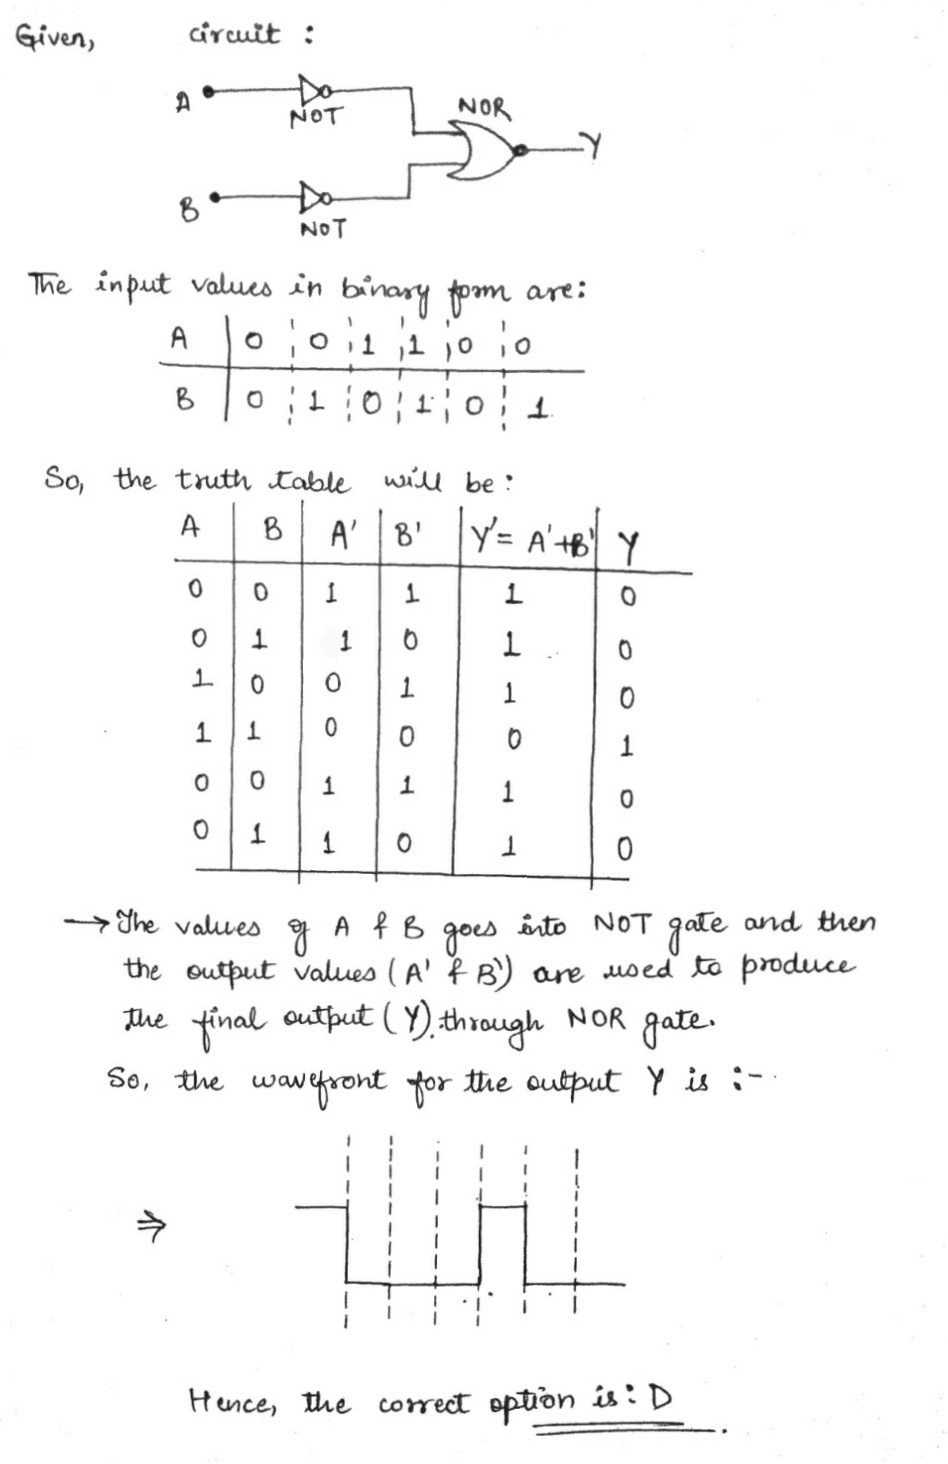 Given, circuit :
A NOT NOR Y
B NOT
The input values in binary form are:
A 0 0 1 1 0 0
B 0 1 0 1 0 1
So, the truth table will be:
A B A' B' Y'= A'+B' Y
0 0 1 1 1 0
0 1 1 0 1 0
1 0 0 1 1 0
1 1 0 0 0 1
0 0 1 1 1 0
0 1 1 0 1 0
→ The values of A & B goes into NOT gate and then
the output values (A' & B') are used to produce
the final output (Y) through NOR gate.
So, the wavefront for the output Y is :-
⇒
Hence, the correct option is: D